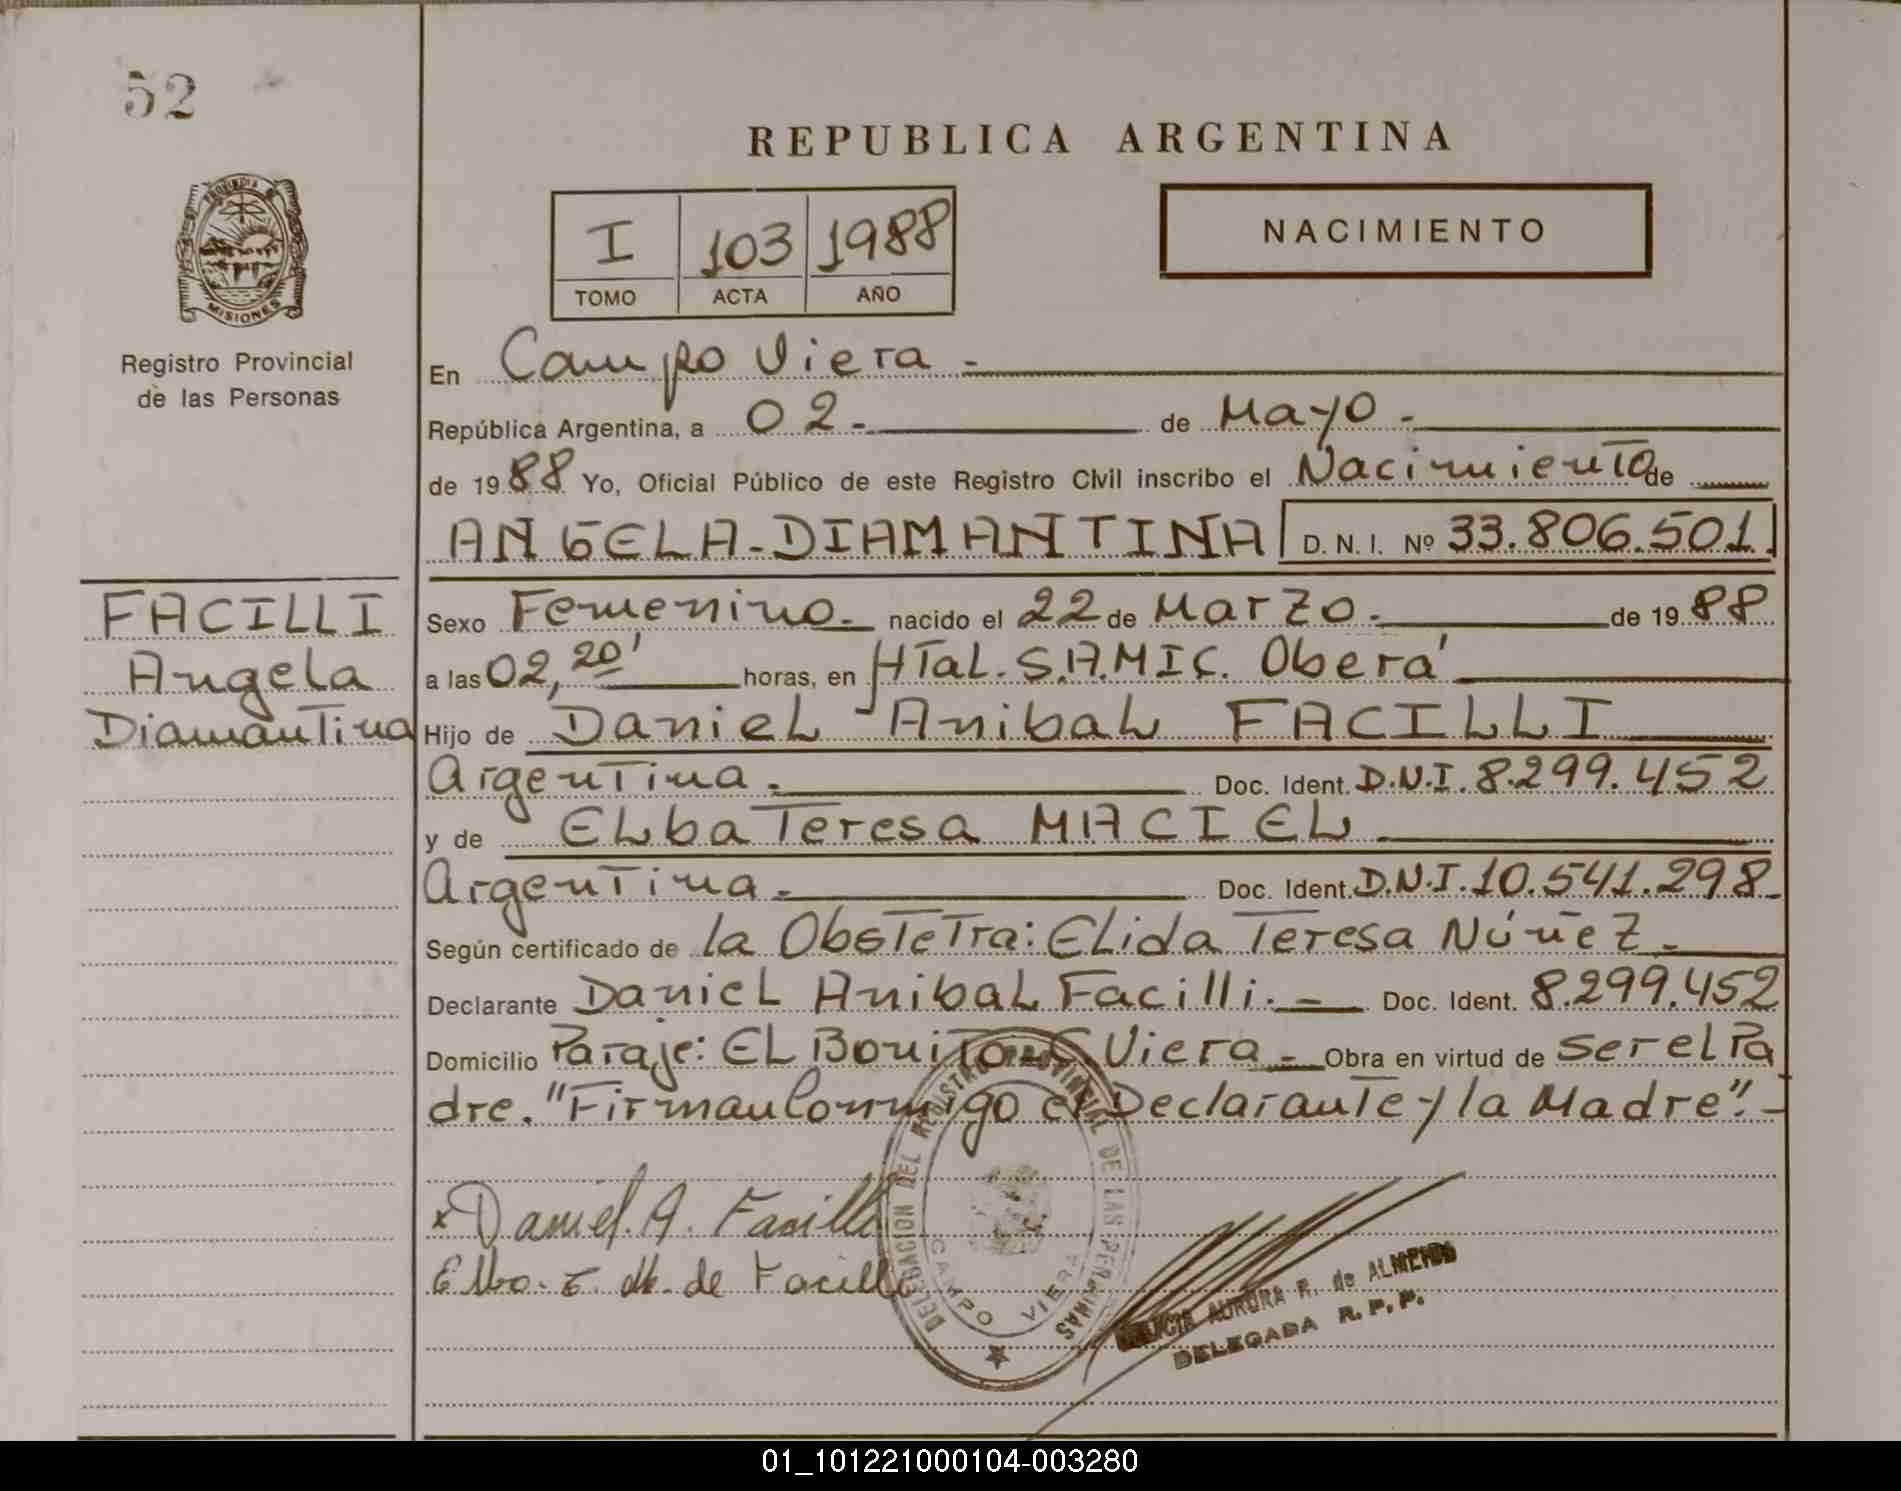 52
REPUBLICA ARGENTINA
PROVINCIA DE
MISIONES
Registro Provincial
de las Personas
I 103 1988
TOMO ACTA AÑO
NACIMIENTO
En Campo Viera -
República Argentina, a 02 - de Mayo -
de 1988 Yo, Oficial Público de este Registro Civil inscribo el Nacimiento de
ANGELA-DIAMANTINA D. N. I. Nº 33.806.501.
FACILLI
Angela
Diamantina
Sexo Femenino - nacido el 22 de Marzo - de 1988
a las 02,20' horas, en HTal. S.A.M.I.C. Oberá
Hijo de Daniel Anibal FACILLI
Argentina - Doc. Ident. D.N.I. 8.299.452
y de Elba Teresa MACIEL
Argentina - Doc. Ident. D.N.I. 10.541.298 -
Según certificado de la Obstetra: Elida Teresa Núñez -
Declarante Daniel Anibal Facilli. - Doc. Ident. 8.299.452
Domicilio Paraje: El Bonito - C. Viera - Obra en virtud de ser el Pa
dre. "Firman Conmigo el Declarante y la Madre". -
x Daniel. A. Facilli
Elba. T. M. de Facilli
DELEGACION DEL REGISTRO PROVINCIAL DE LAS PERSONAS
CAMPO VIERA
AURORA R. de ALMEIDA
DELEGADA R. P. P.
01_101221000104-003280